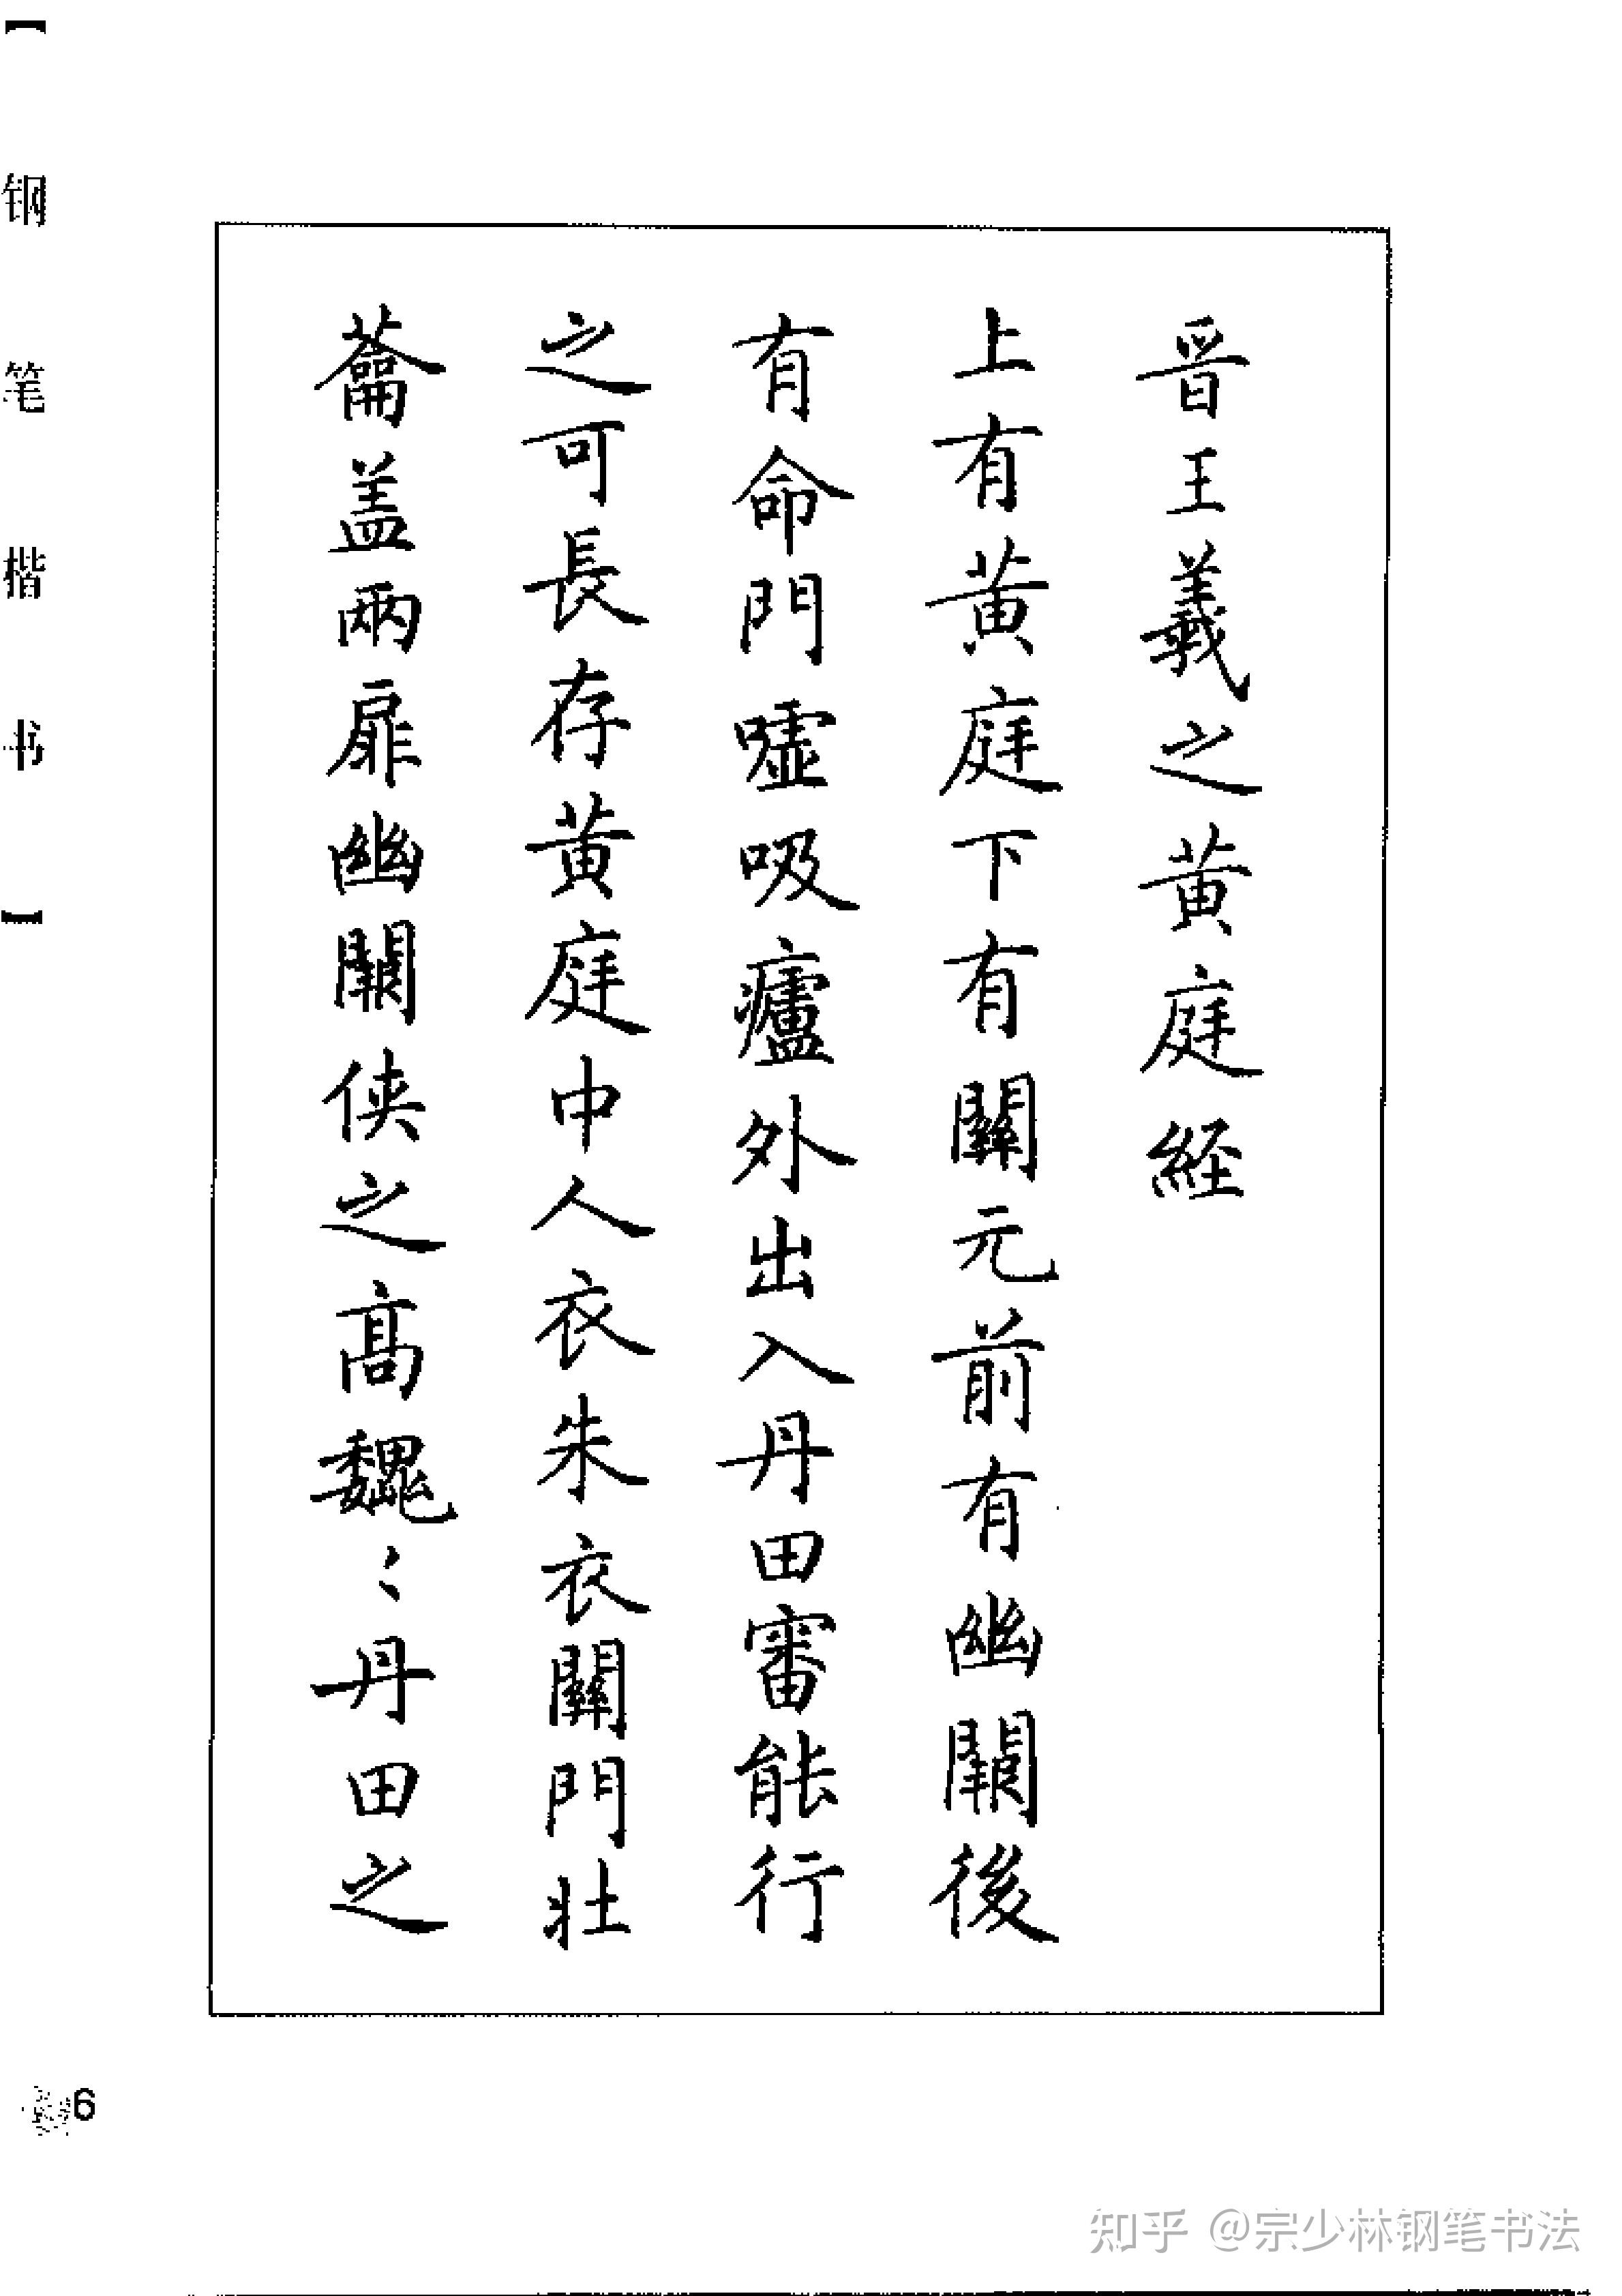 晉王羲之黃庭經
上有黃庭下有關元前有幽闕後
有命門噓吸廬外出入丹田審能行
之可長存黃庭中人衣朱衣關門壯
籥盖兩扉幽闕俠之高魏〻丹田之
【钢笔楷书】
6
知乎 @宗少林钢笔书法